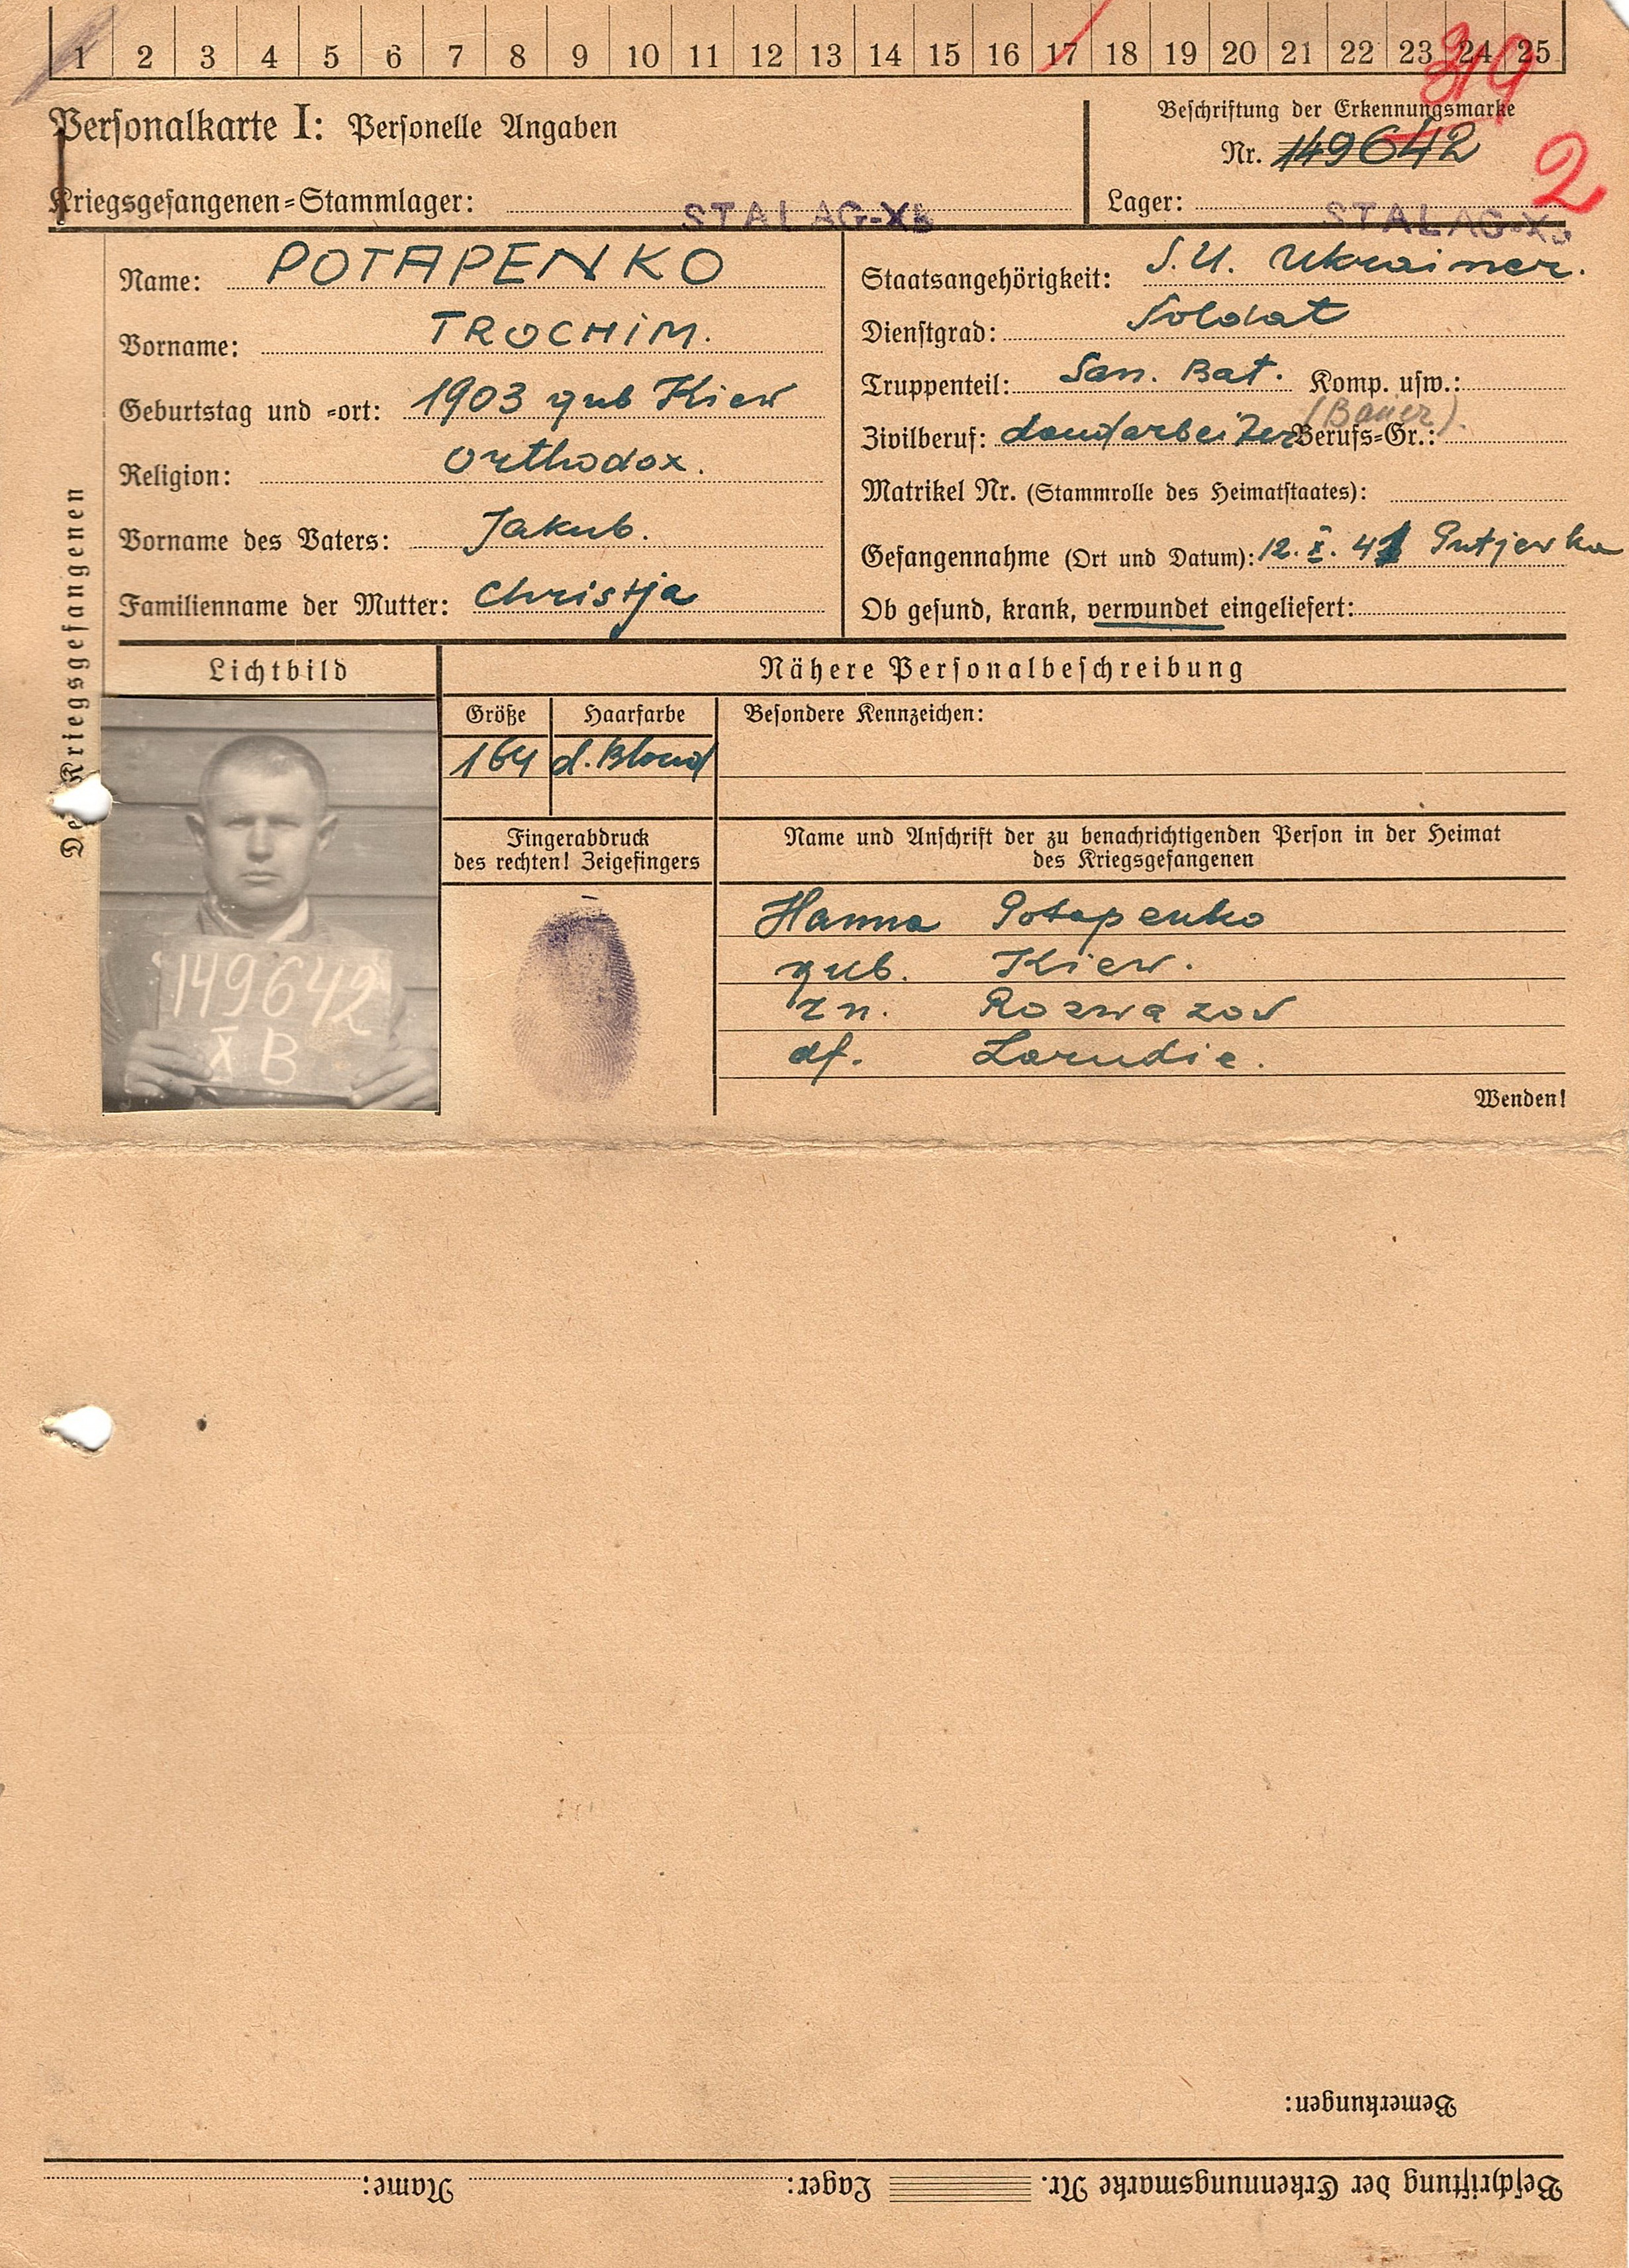 1 2 3 4 5 6 7 8 9 10 11 12 13 14 15 16 17 18 19 20 21 22 23 24 25
319
Personalkarte I: Personelle Angaben
Beschriftung der Erkennungsmarke
Nr. 149642
2
Kriegsgefangenen-Stammlager: STALAG-XB
Lager: STALAG-XB
Des Kriegsgefangenen
Name: POTAPENKO
Vorname: TROCHIM.
Geburtstag und -ort: 1903 gub Kiew
Religion: Orthodox.
Vorname des Vaters: Jakub.
Familienname der Mutter: Christja
Staatsangehörigkeit: S.U. Ukrainer.
Dienstgrad: Soldat
Truppenteil: San. Bat. Komp. usw.:
Zivilberuf: Landarbeiter Berufs-Gr.: (Bauer).
Matrikel Nr. (Stammrolle des Heimatstaates):
Gefangennahme (Ort und Datum): 12. X. 41 Putjewka
Ob gesund, krank, verwundet eingeliefert:
Lichtbild
149642
X B
Nähere Personalbeschreibung
Größe
164
Haarfarbe
d. Blond
Besondere Kennzeichen:
Fingerabdruck
des rechten! Zeigefingers
Name und Anschrift der zu benachrichtigenden Person in der Heimat
des Kriegsgefangenen
Hanna Potapenko
gub. Kiew.
rn. Roswazow
df. Larudie.
Wenden!
Bemerkungen:
Beschriftung der Erkennungsmarke Nr. Lager: Name: